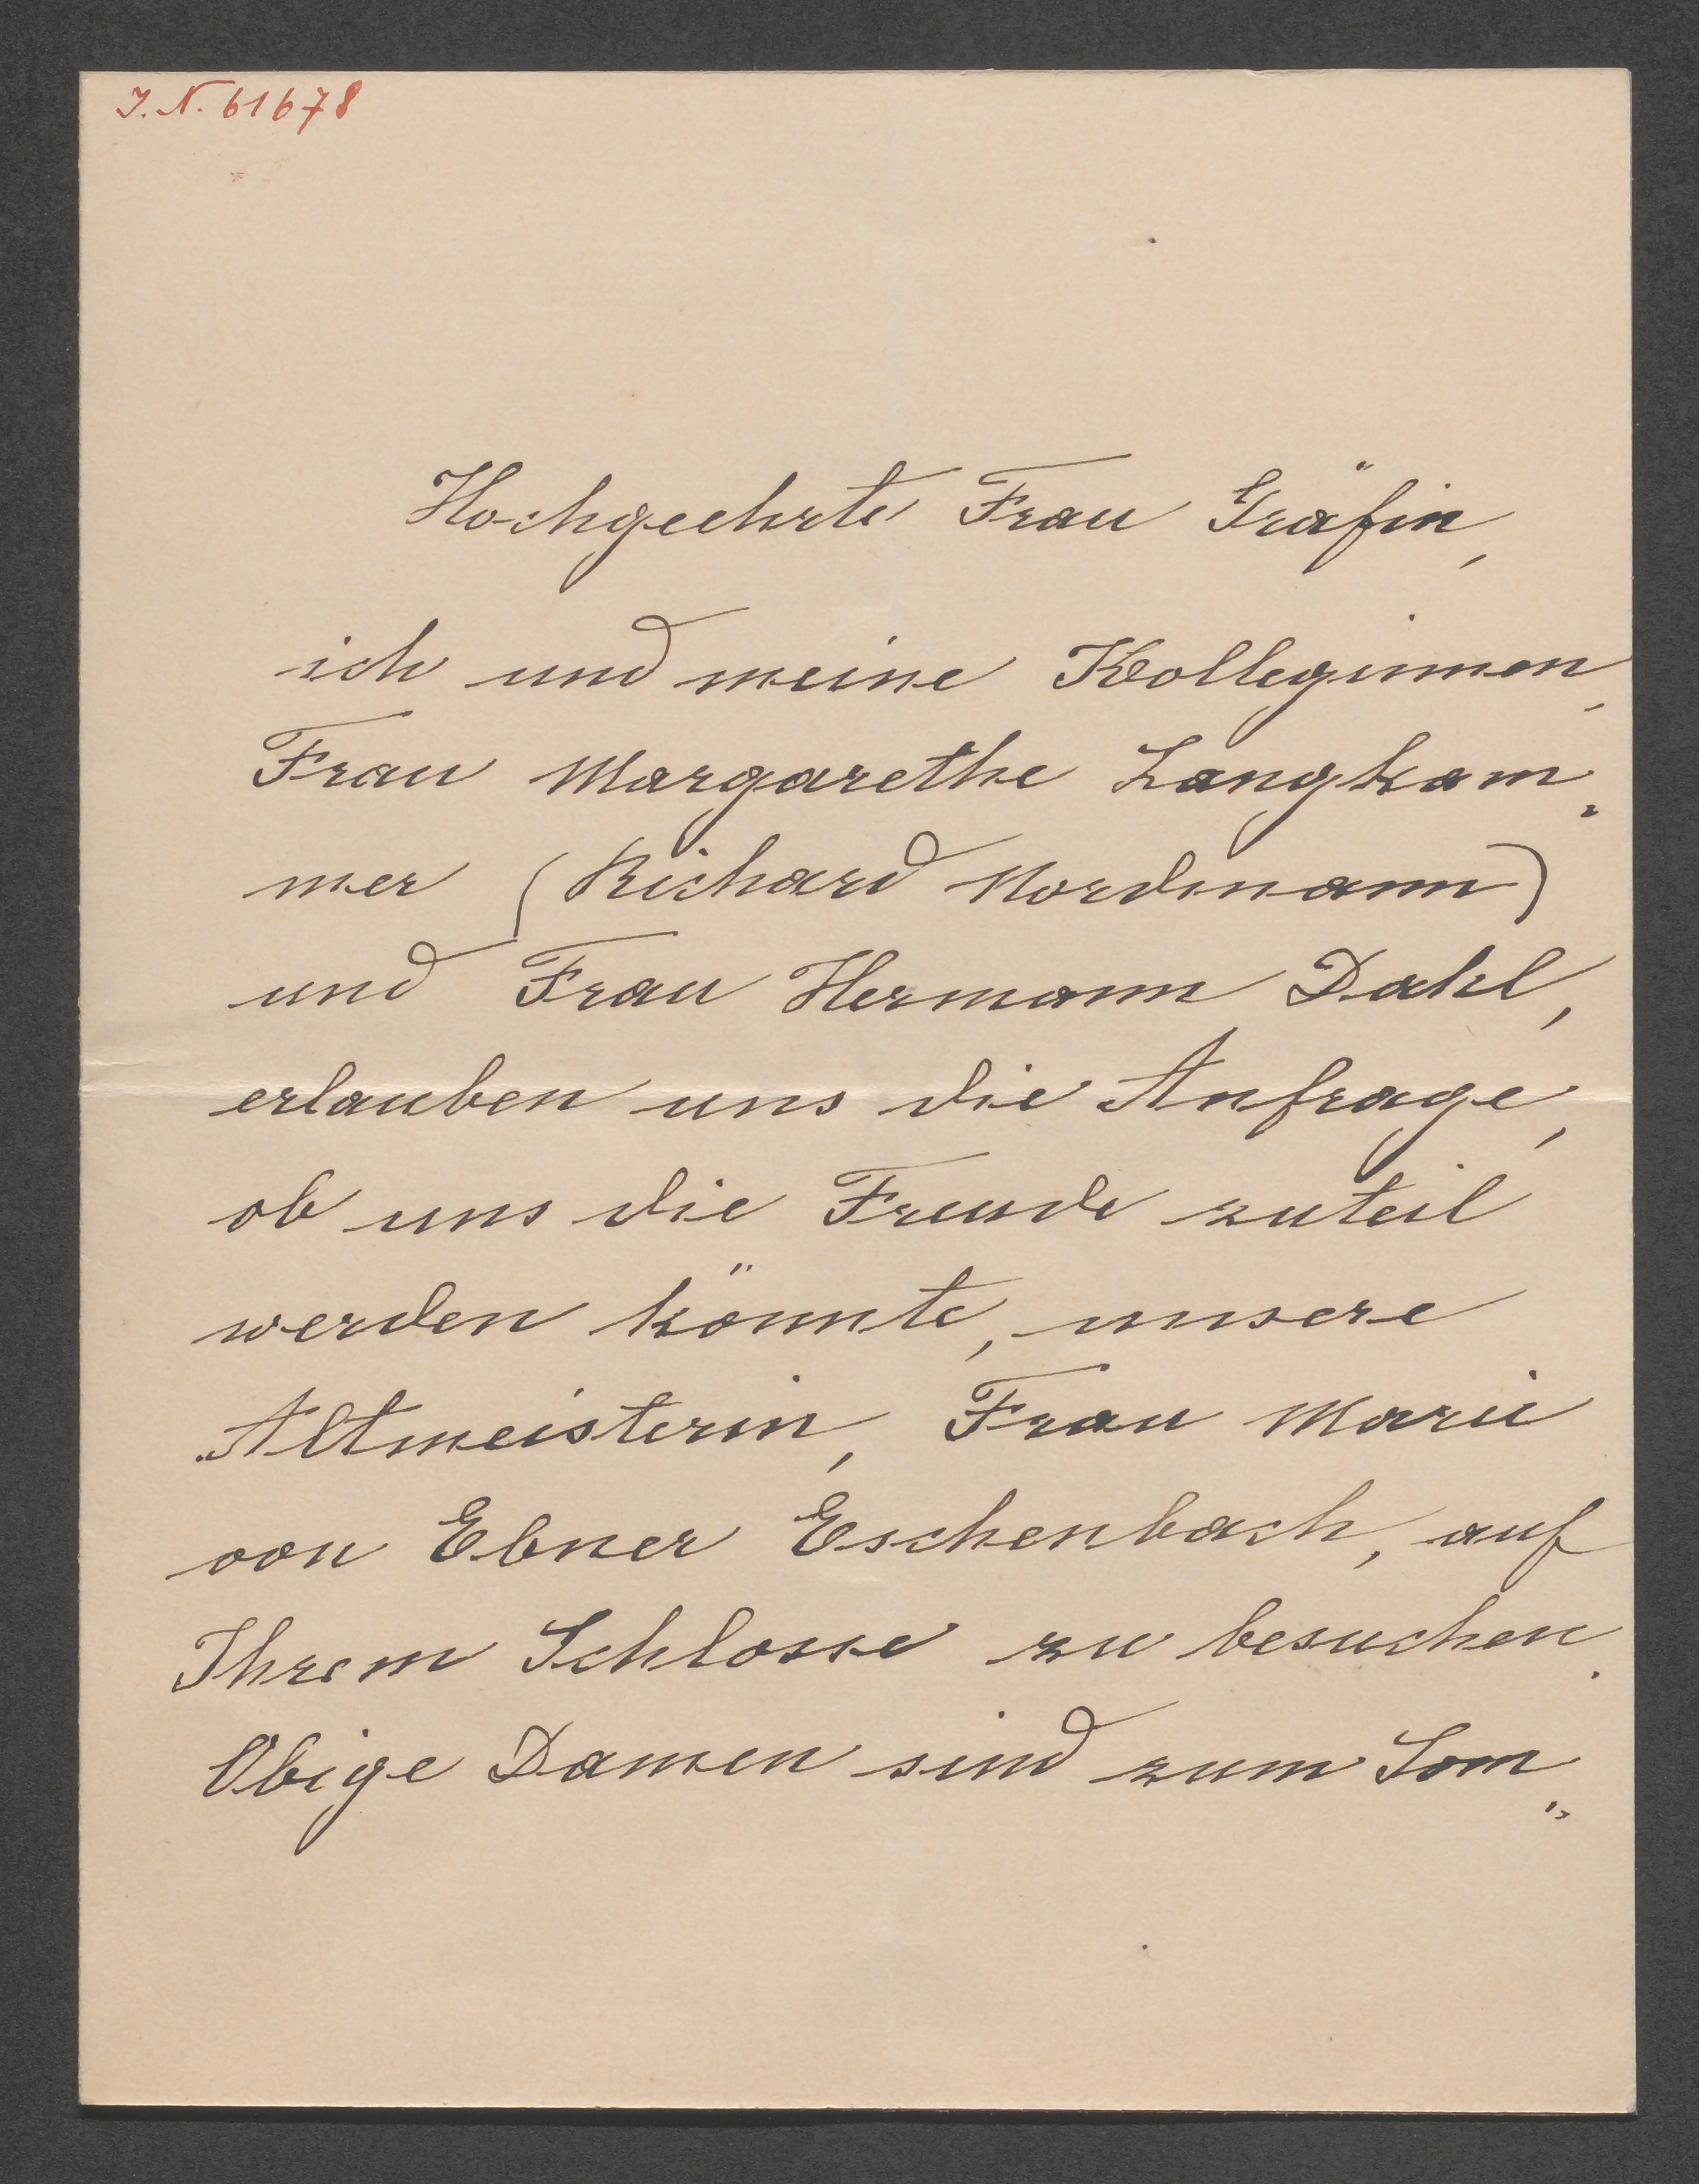 I. N. 61678
Hochgeehrte Frau Gräfin,
ich und meine Kolleginnen,
Frau Margarethe Langkam-
mer (Richard Nordmann)
und Frau Hermann Dahl,
erlauben uns die Anfrage,
ob uns die Freude zuteil
werden könnte, unsere
Altmeisterin, Frau Marie
von Ebner Eschenbach, auf
Ihrem Schlosse zu besuchen.
Obige Damen sind zum Som„